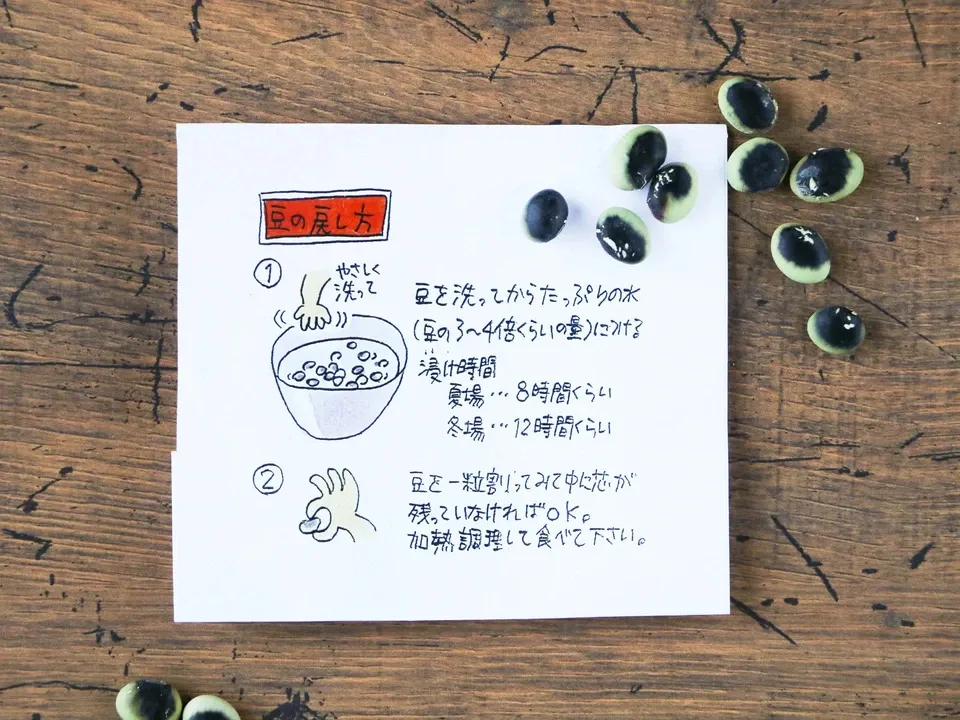 豆の戻し方
①
やさしく
洗って
豆を洗ってからたっぷりの水
(豆の3〜4倍くらいの量)につける
浸け時間
夏場…8時間くらい
冬場…12時間くらい
②
豆を一粒割ってみて中に芯が
残っていなければOK。
加熱調理して食べて下さい。